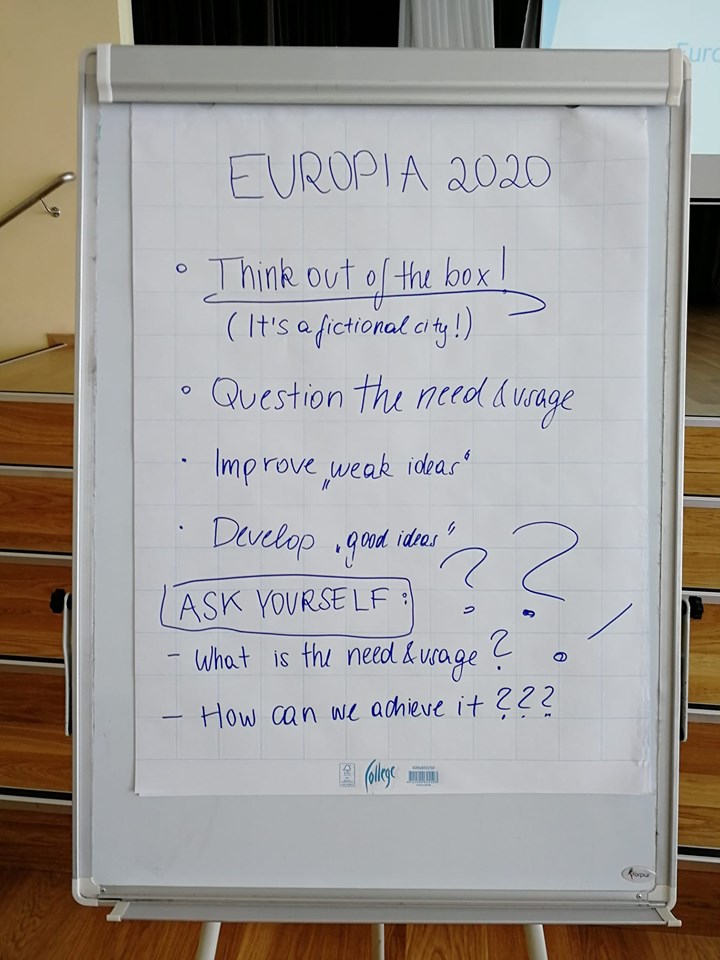 Euro
EUROPIA 2020
° Think out of the box!
(It's a fictional city!)
° Question the need & usage
· Improve „weak ideas“
· Develop „good ideas“
? ?
ASK YOURSELF:
- What is the need & usage?
- How can we achieve it ???
College
forpus